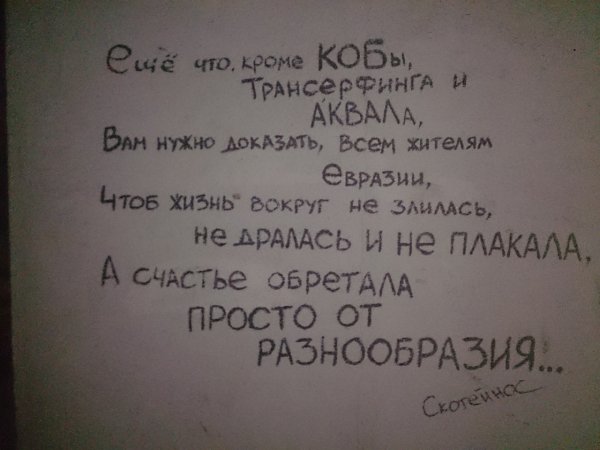 Ещё что, кроме КОБы,
Трансерфинга и
АКВАЛа,
Вам нужно доказать, всем жителям
Евразии,
Чтоб жизнь вокруг не злилась,
не дралась и не плакала,
А счастье обретала
просто от
разнообразия...
Скотейнос